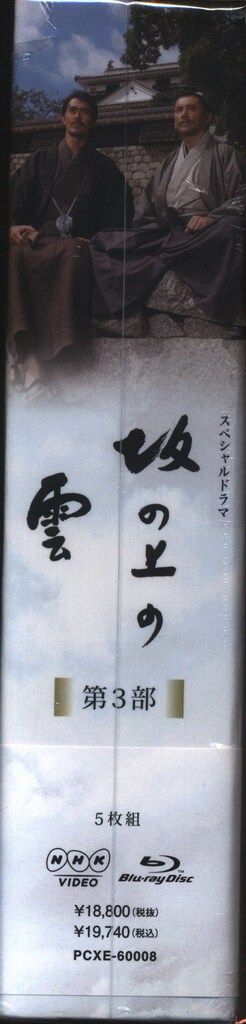 スペシャルドラマ
坂の上の
雲
第3部
5枚組
NHK
VIDEO
Blu-ray Disc™
¥18,800(税抜)
¥19,740(税込)
PCXE-60008